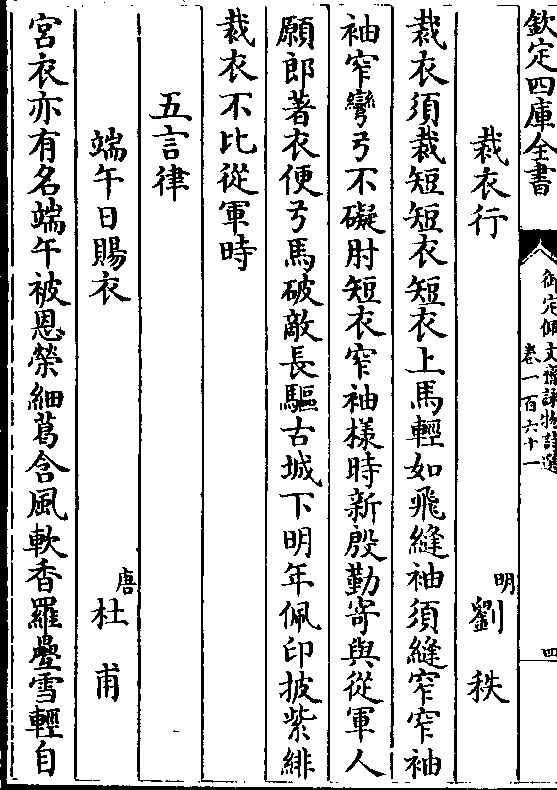 欽定四庫全書
御定佩文齋詠物詩選
卷一百六十一
四
裁衣行
明
劉秩
裁衣須裁短短衣短衣上馬輕如飛縫袖須縫窄窄袖
袖窄彎弓不礙肘短衣窄袖樣時新殷勤寄與從軍人
願郎著衣便弓馬破敵長驅古城下明年佩印披紫緋
裁衣不比從軍時
五言律
端午日賜衣
唐
杜甫
宮衣亦有名端午被恩榮細葛含風軟香羅疊雪輕自